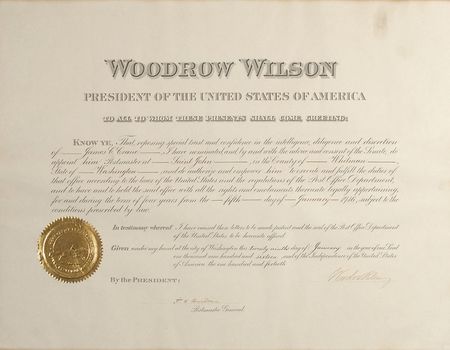 WOODROW WILSON
PRESIDENT OF THE UNITED STATES OF AMERICA
TO ALL TO WHOM THESE PRESENTS SHALL COME, GREETING:
KNOW YE, That, reposing special trust and confidence in the intelligence, diligence and discretion
of James C. Crane, I have nominated, and by and with the advice and consent of the Senate, do
appoint him Postmaster at Saint John, in the County of Whitman,
State of Washington and do authorize and empower him to execute and fulfil the duties of
that office according to the laws of the United States and the regulations of the Post Office Department,
and to have and to hold the said office with all the rights and emoluments thereunto legally appertaining,
for and during the term of four years from the fifth day of January 1916, subject to the
conditions prescribed by law.
In testimony whereof I have caused these letters to be made patent and the seal of the Post Office Department
of the United States to be hereunto affixed.
Given under my hand at the city of Washington this day of January in the year of our Lord
one thousand nine hundred and sixteen and of the Independence of the United States
of America the one hundred and fortieth
By the PRESIDENT:
Postmaster General.